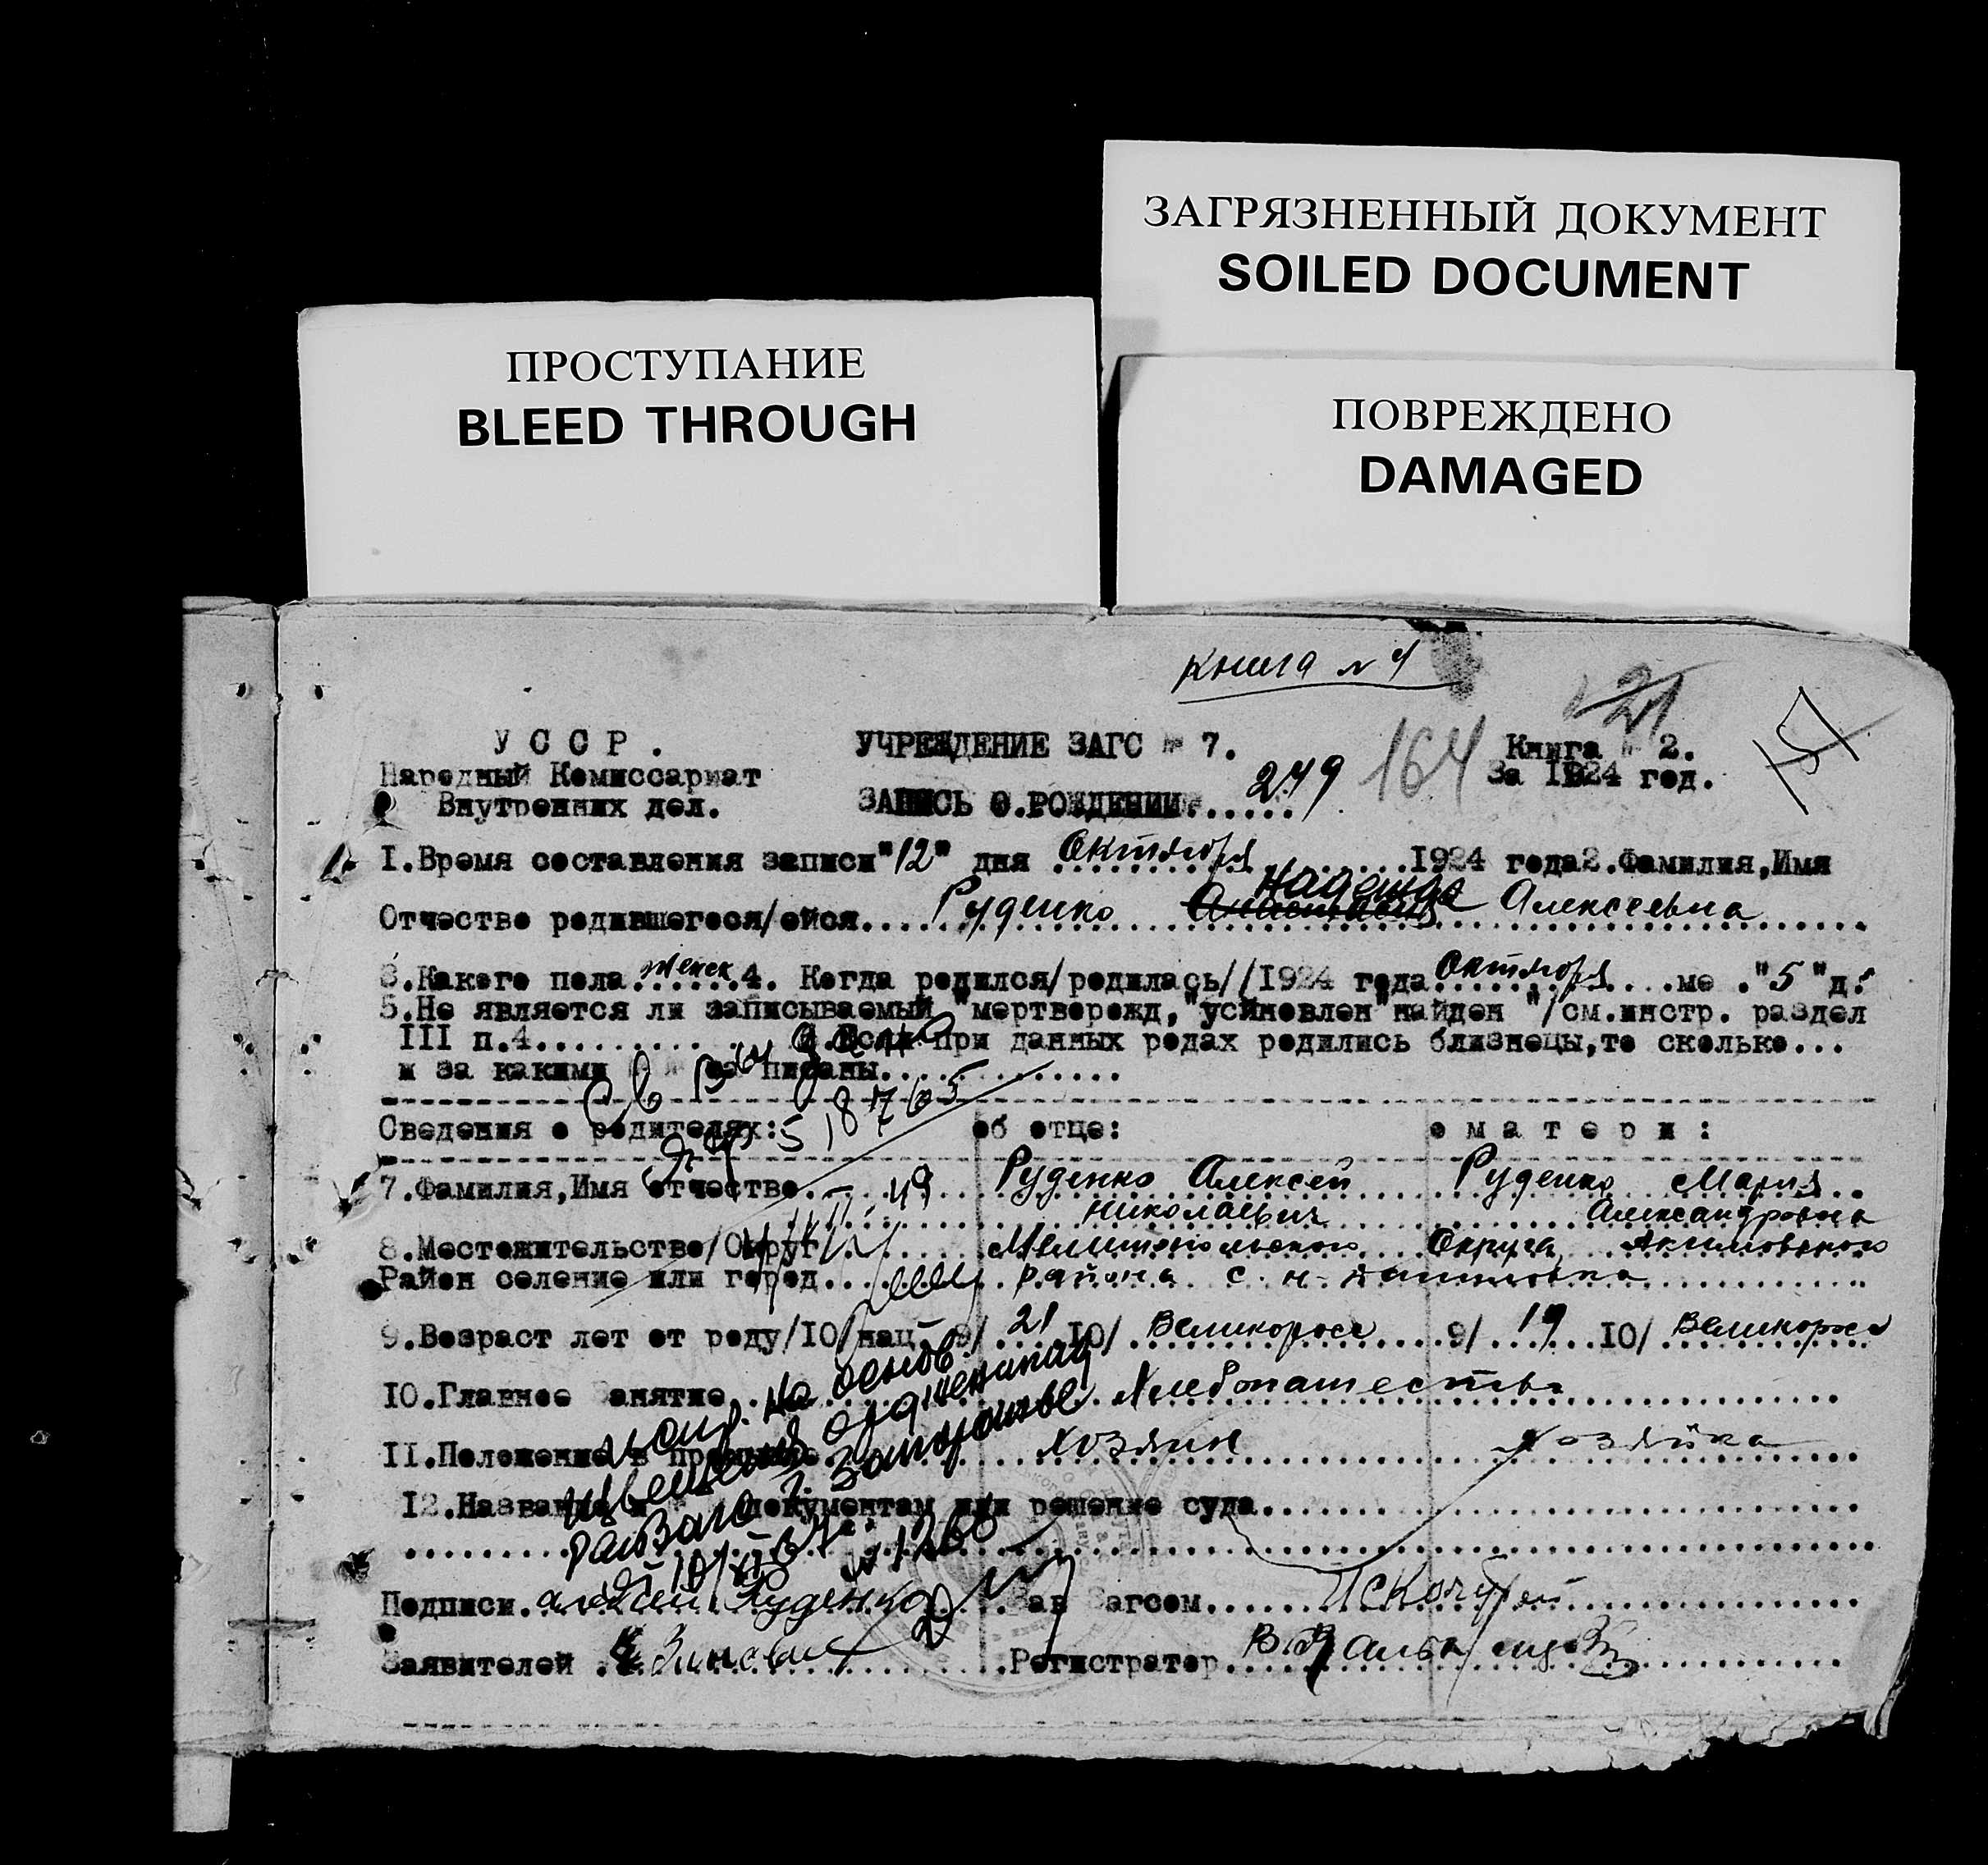 ЗАГРЯЗНЕННЫЙ ДОКУМЕНТ
SOILED DOCUMENT
ПРОСТУПАНИЕ
BLEED THROUGH
ПОВРЕЖДЕНО
DAMAGED
Книга № 4
21
УССР.
УЧРЕЖДЕНИЕ ЗАГС № 7.
164
Книга № 2.
Народный Комиссариат
За 1924 год.
Внутренних дел.
ЗАПИСЬ О.РОЖДЕНИИ......279
I.Время составления записи"12" дня Октября 1924 года2.Фамилия,Имя
Надежда
Отчество родившегося/ейся....Руденко Анастасия Алексеевна
3.Какого пола женск 4. Когда родился/родилась//1924 года Октября ме ."5"д.
5.Не является ли записываемый "мертворожд,"усйновлен"найден "/см.инстр. раздел
III п.4........... 6.Если при данных родах родились близнецы,то сколько...
и за какими № записаны.............
518765
Сведения о родителях: об отце: о матери:
7.Фамилия,Имя отчество.. Руденко Алексей Руденко Мария
Николаевич Александровна
8.Местожительство/Округ/ Мелитопольского Округа Акимовского
Район селение или город... района с. н-
9.Возраст лет от роду/10/нац- 9/ 21 10/ Великоросс 9/ 19 10/ Великоросс
10.Главное занятие Хлебопашество
на основ.
извещения
II.Положение в хозяин хозяйка
12.Название и № документам или решение суда
№ 1260
Подписи. Алексей Руденко Зав Загсом
Заявителей Регистратор